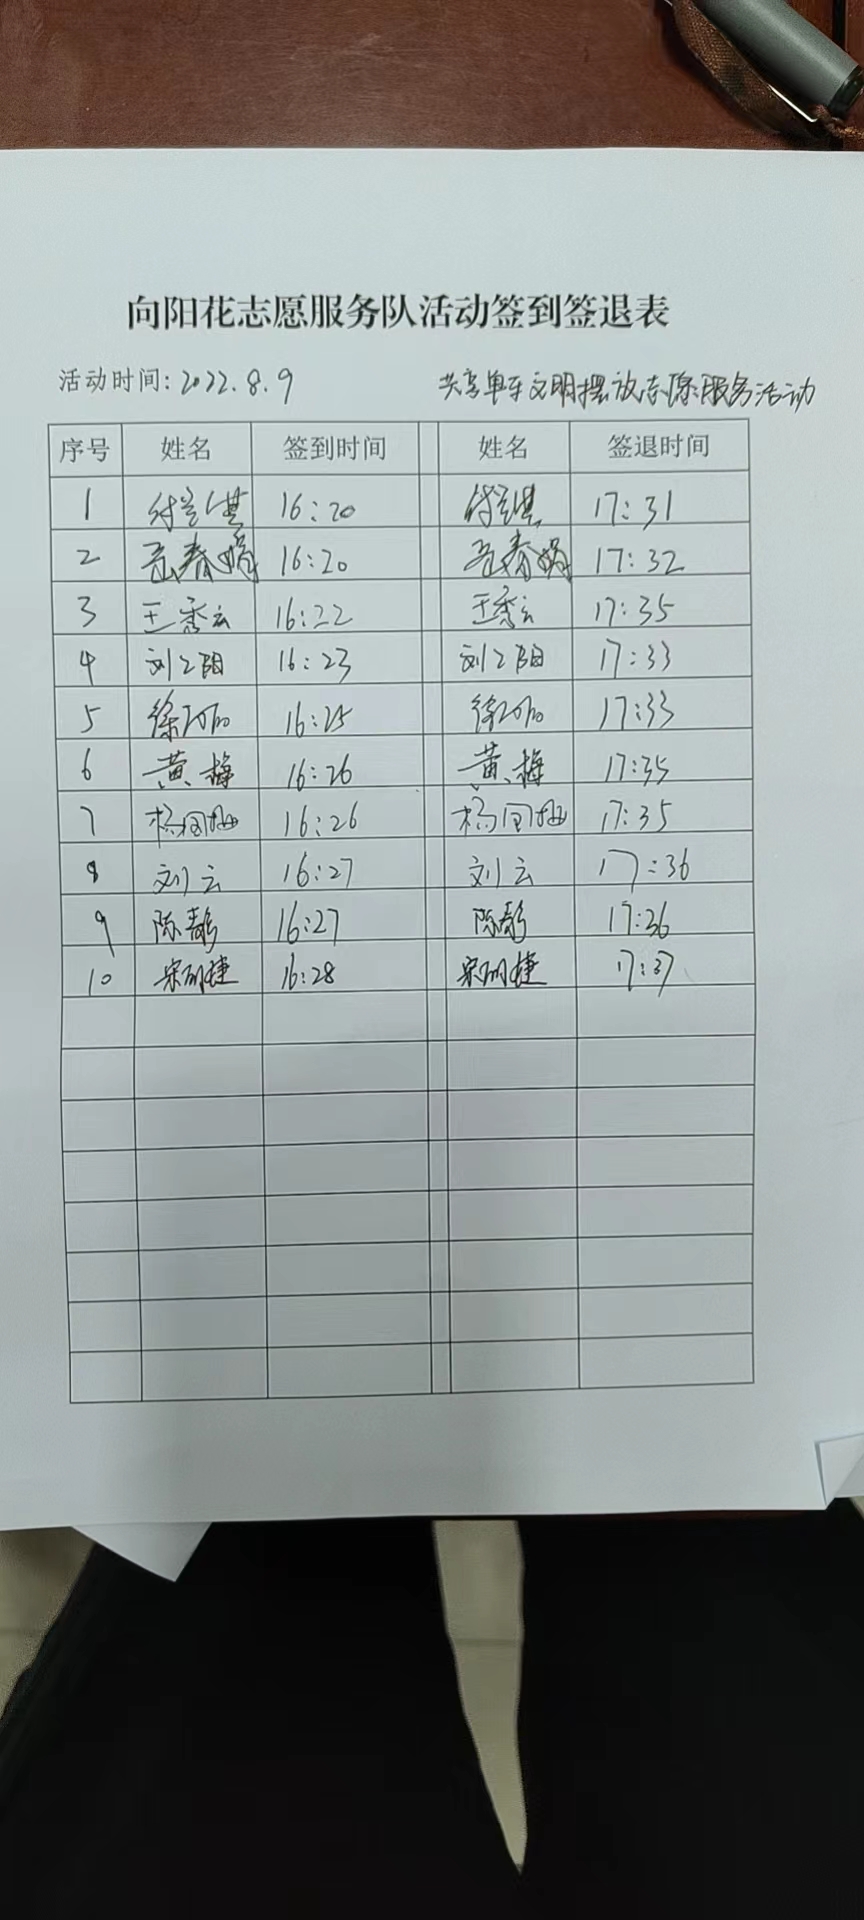 向阳花志愿服务队活动签到签退表
活动时间: 2022.8.9 共享单车文明摆放志愿服务活动
序号 姓名 签到时间 姓名 签退时间
1 16:20 17:31
2 春娟 16:20 春娟 17:32
3 王秀云 16:22 王秀云 17:35
4 刘 阳 16:23 刘 阳 17:33
5 徐 16:25 徐 17:33
6 黄梅 16:26 黄梅 17:35
7 杨 16:26 杨 17:35
8 刘云 16:27 刘云 17:36
9 陈 16:27 陈 17:36
10 宋 捷 16:28 宋 捷 17:37